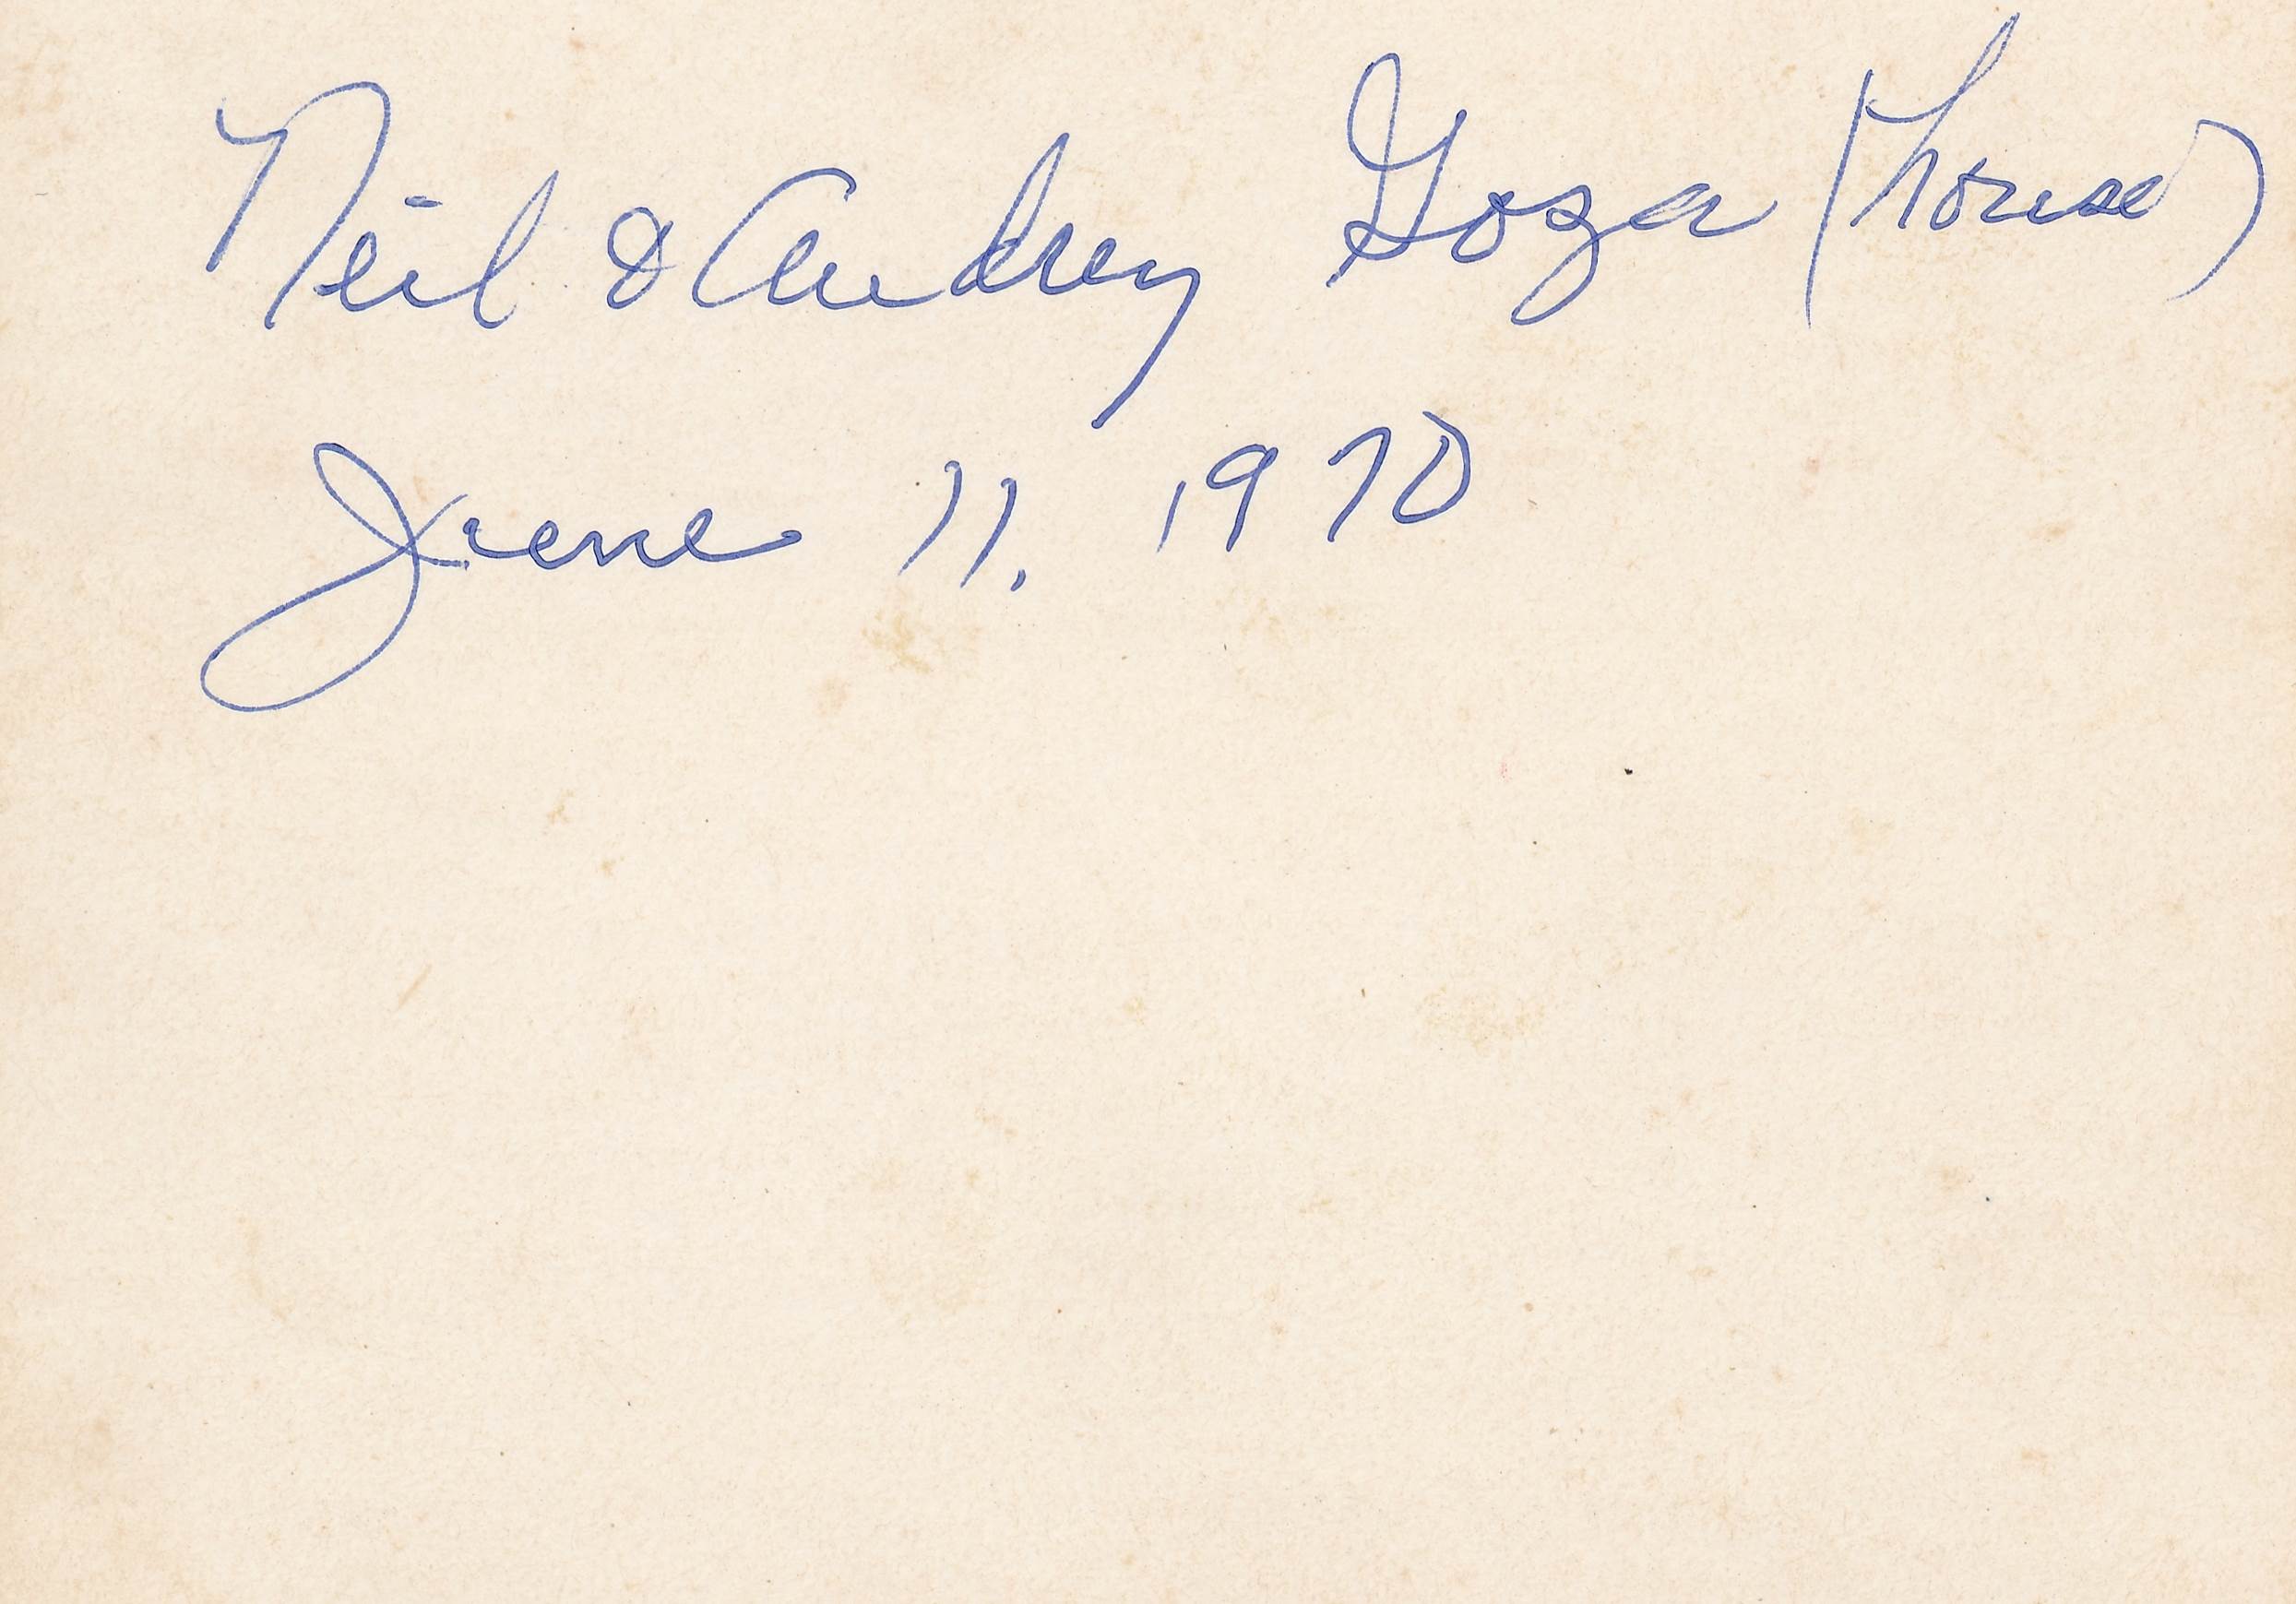 Neil & Audrey Goza (house)
June 11. 1970